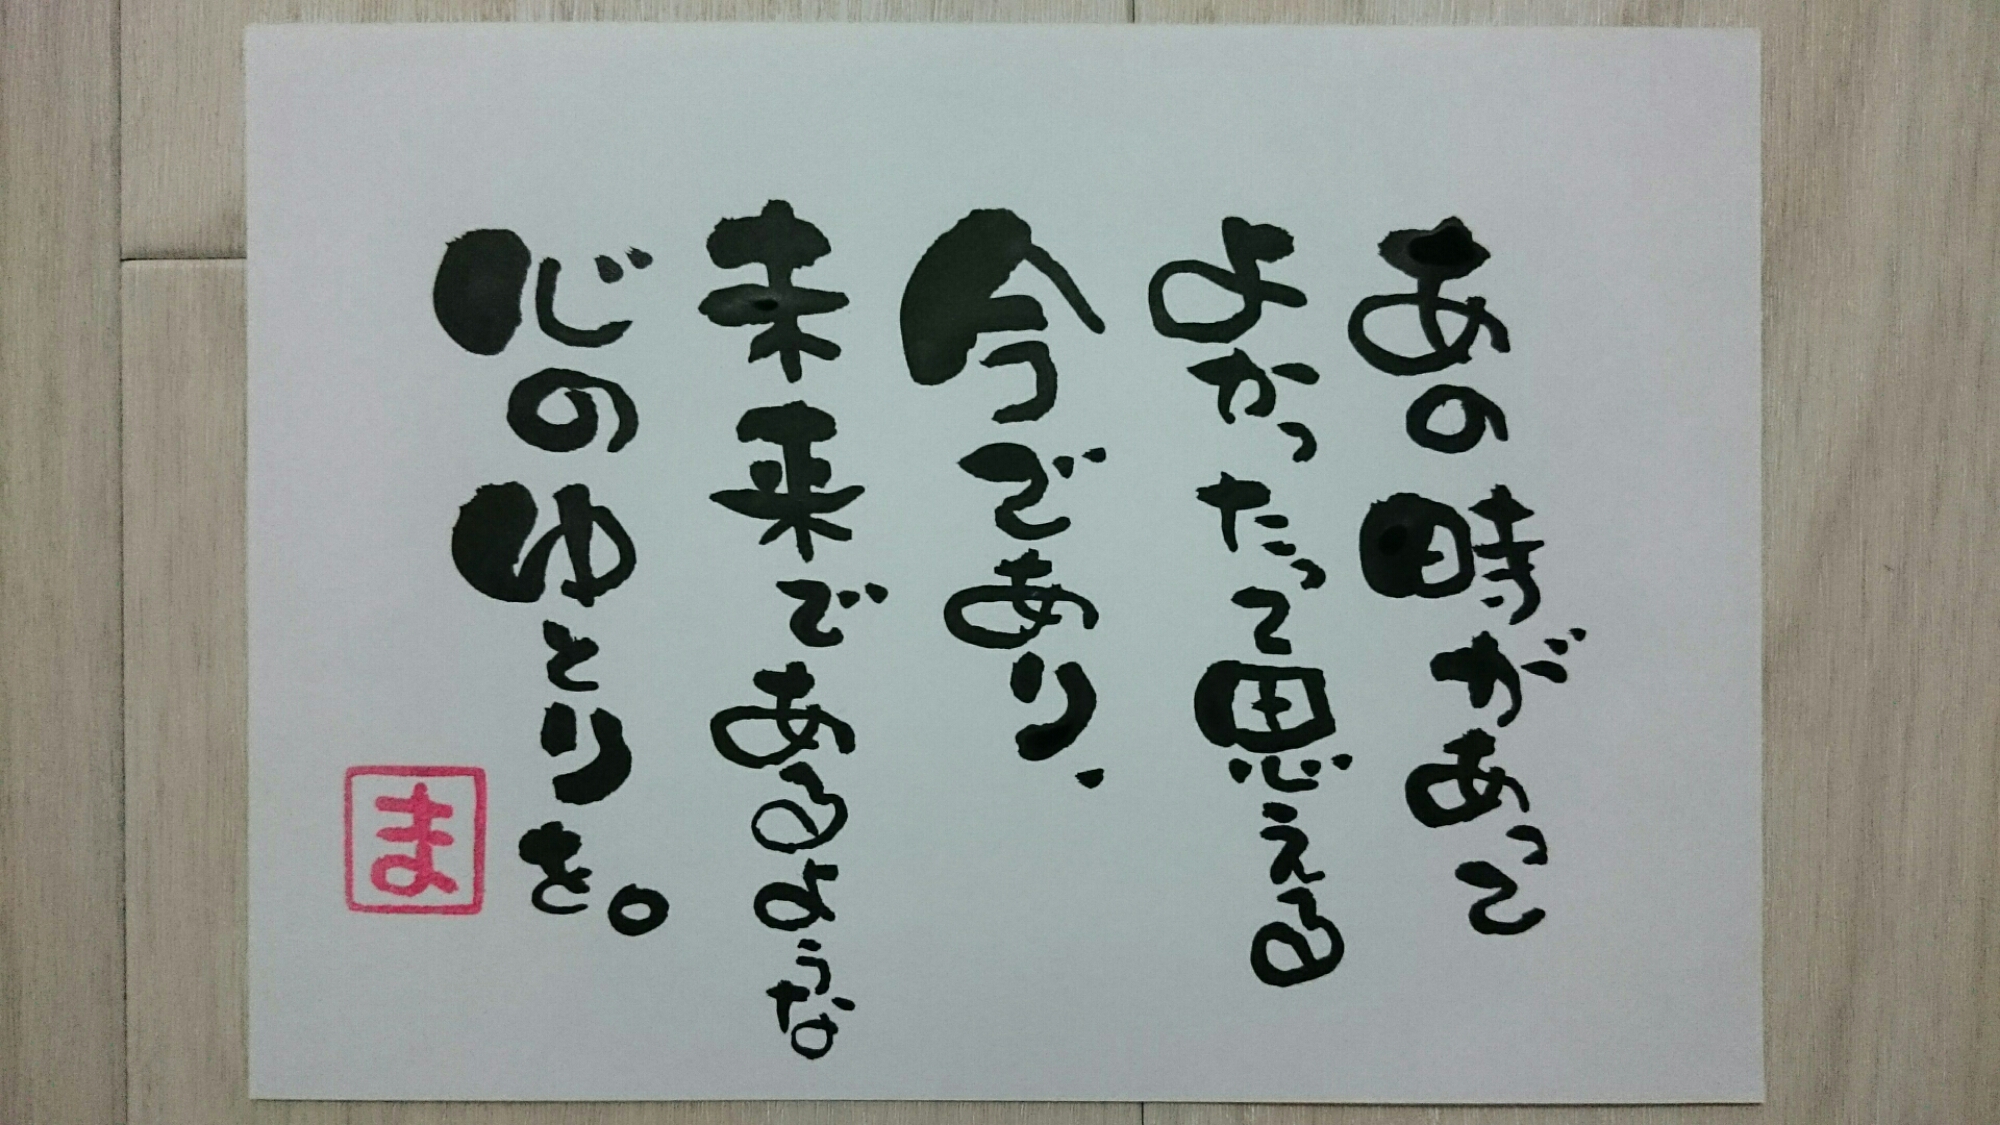 あの時があって
よかったって思える
今であり、
未来であるような
心のゆとりを。
ま